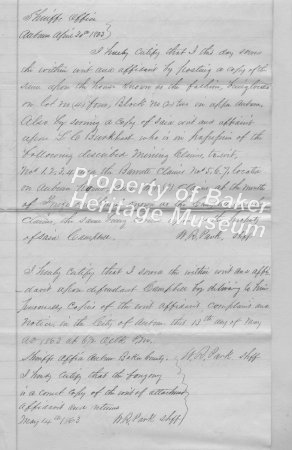 Sheriffs Office
Auburn April 30th 1863
I hereby Certify that I this day served
the within writ and affidavit by posting a copy of the
same upon the house known as the fashion, being situated
on Lot No (4) four, Block No (2) two on
Also by serving a copy of said writ and affidavit
upon who is in possession of the
following described Mining Claims, towit,
Nos 1.2.3.4 the Claims Nos 5.6.7. located
on Auburn at the mouth
of known as the
Claims, the same being property
of said Campbell. W. R. Park, Shff
I hereby Certify that I served the within writ and affi-
davit upon defendant Campbell by delivering to him
personally Copies of the writ affidavit Complaint and
Notice in the City of Auburn this 13th day of May
AD 1863 at 6 oclk P.m.
Sheriffs Office Auburn Baker County. W. R. Park Shff
I hereby Certify that the foregoing
is a correct Copy of the writ of attachment
affidavit and returns
May 14th 1863 W. R. Park Shff
Property of Baker
Heritage Museum